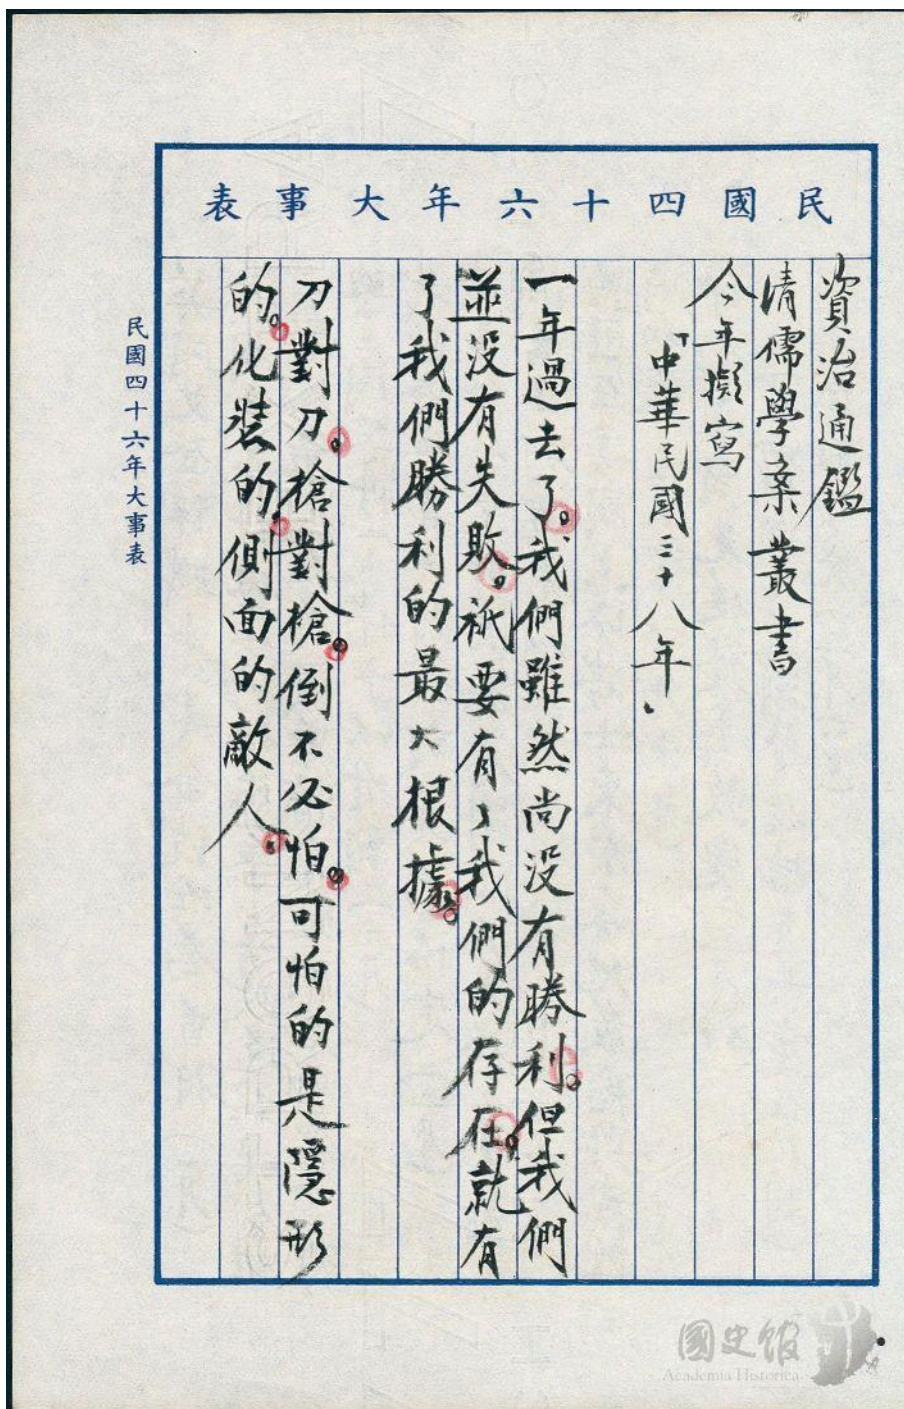 民國四十六年大事表
資治通鑑
清儒學案叢書
今年擬寫
「中華民國三十八年」
一年過去了。我們雖然尚没有勝利。但我們
並没有失敗。祇要有了我們的存在。就有
了我們勝利的最大根據。
刀對刀。槍對槍。倒不必怕。可怕的是隱形
的。化裝的。側面的敵人。
民國四十六年大事表
國史館
Academia Historica